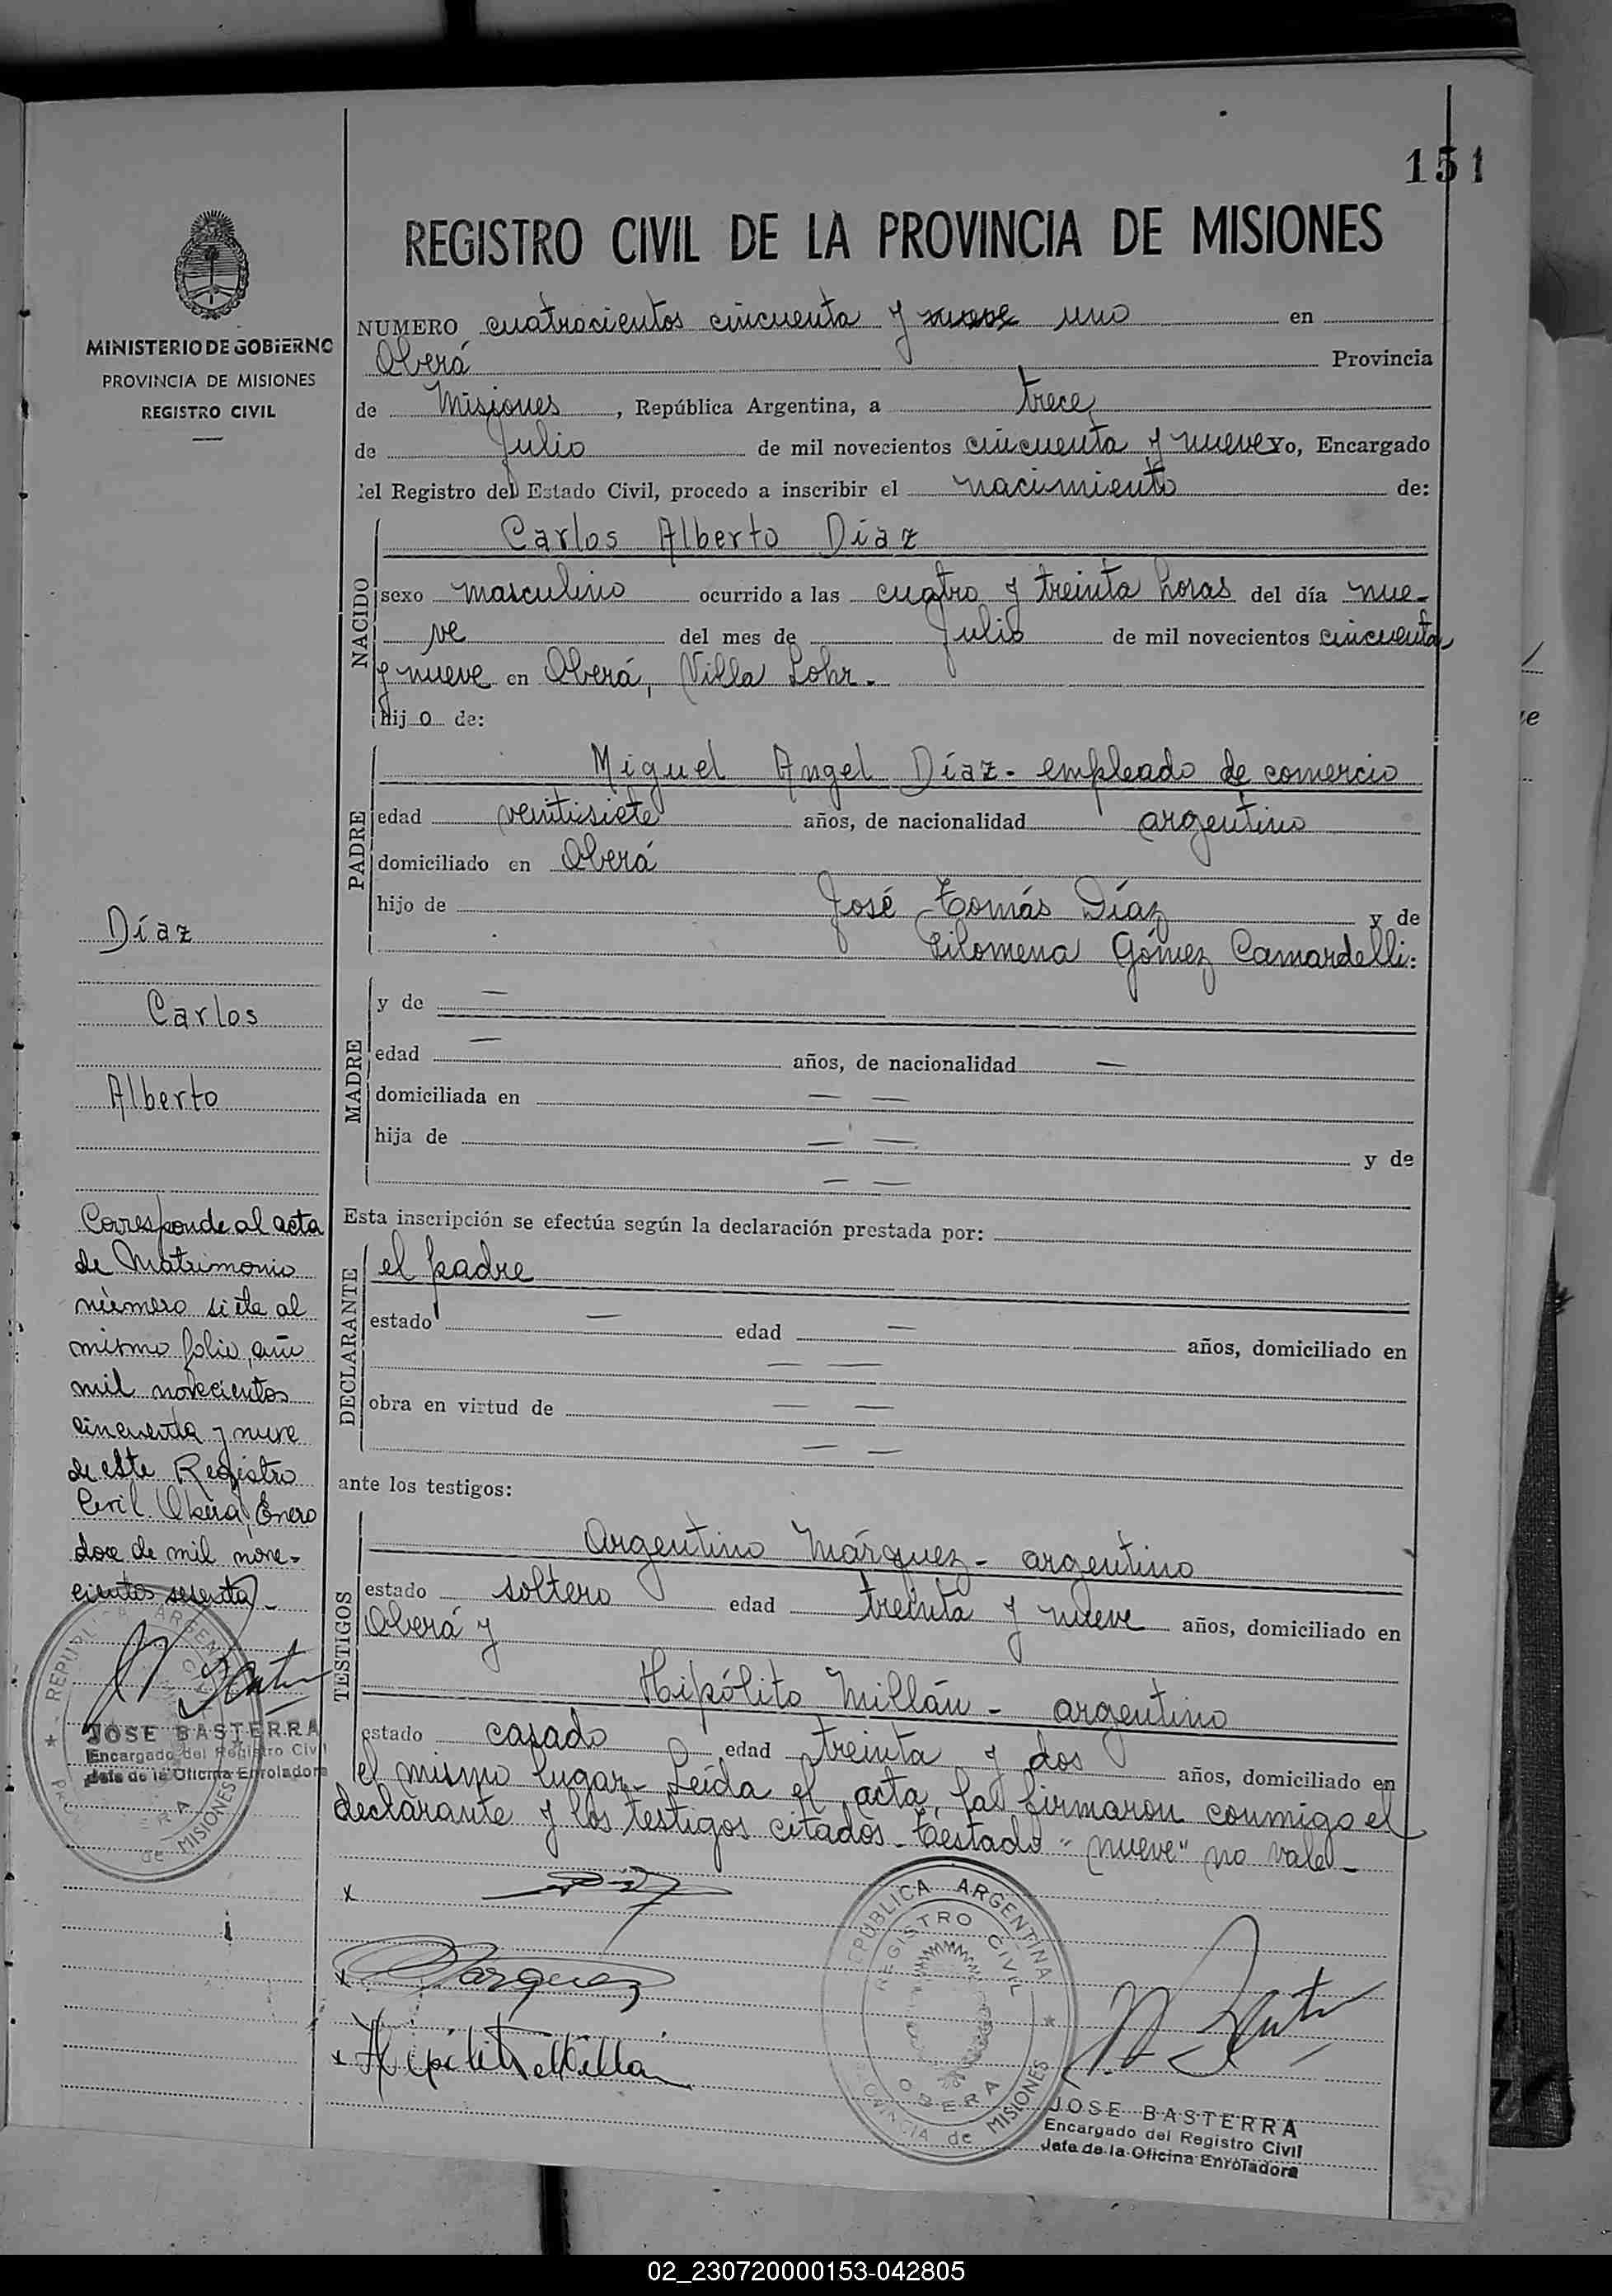 151
MINISTERIO DE GOBIERNO
PROVINCIA DE MISIONES
REGISTRO CIVIL
REGISTRO CIVIL DE LA PROVINCIA DE MISIONES
NUMERO cuatrocientos cincuenta y nueve uno en
Oberá Provincia
de Misiones, República Argentina, a trece
de Julio de mil novecientos cincuenta y nueve Yo, Encargado
del Registro del Estado Civil, procedo a inscribir el nacimiento de:
NACIDO
Carlos Alberto Díaz
sexo masculino ocurrido a las cuatro y treinta horas del día nue-
ve del mes de Julio de mil novecientos cincuenta
y nueve en Oberá, Villa Lohr.
hijo de:
PADRE
Miguel Angel Díaz - empleado de comercio
edad veintisiete años, de nacionalidad argentino
domiciliado en Oberá
hijo de José Tomás Díaz y de
Filomena Gómez Camardelli:
MADRE
y de —
edad — años, de nacionalidad —
domiciliada en — —
hija de — — y de
— —
Esta inscripción se efectúa según la declaración prestada por:
DECLARANTE
el padre
estado — edad — años, domiciliado en
— —
obra en virtud de — —
— —
ante los testigos:
TESTIGOS
Argentino Márquez - argentino
estado soltero edad treinta y nueve años, domiciliado en
Oberá y
Hipólito Millán - argentino
estado casado edad treinta y dos años, domiciliado en
el mismo lugar - Leída el acta, la firmaron conmigo el
declarante y los testigos citados - Testado "nueve" no vale -
x
x Marquez
x Hipólito Millan
REPUBLICA ARGENTINA
REGISTRO CIVIL
OBERA
PROVINCIA de MISIONES
JOSE BASTERRA
Encargado del Registro Civil
Jefe de la Oficina Enroladora
Díaz
Carlos
Alberto
Corresponde al acta
de Matrimonio
número siete al
mismo folio, año
mil novecientos
cincuenta y nueve
de este Registro
Civil. Oberá, Enero
doce de mil nove-
cientos sesenta -
REPUBLICA ARGENTINA
de MISIONES
JOSE BASTERRA
Encargado del Registro Civil
Jefe de la Oficina Enroladora
02_230720000153-042805